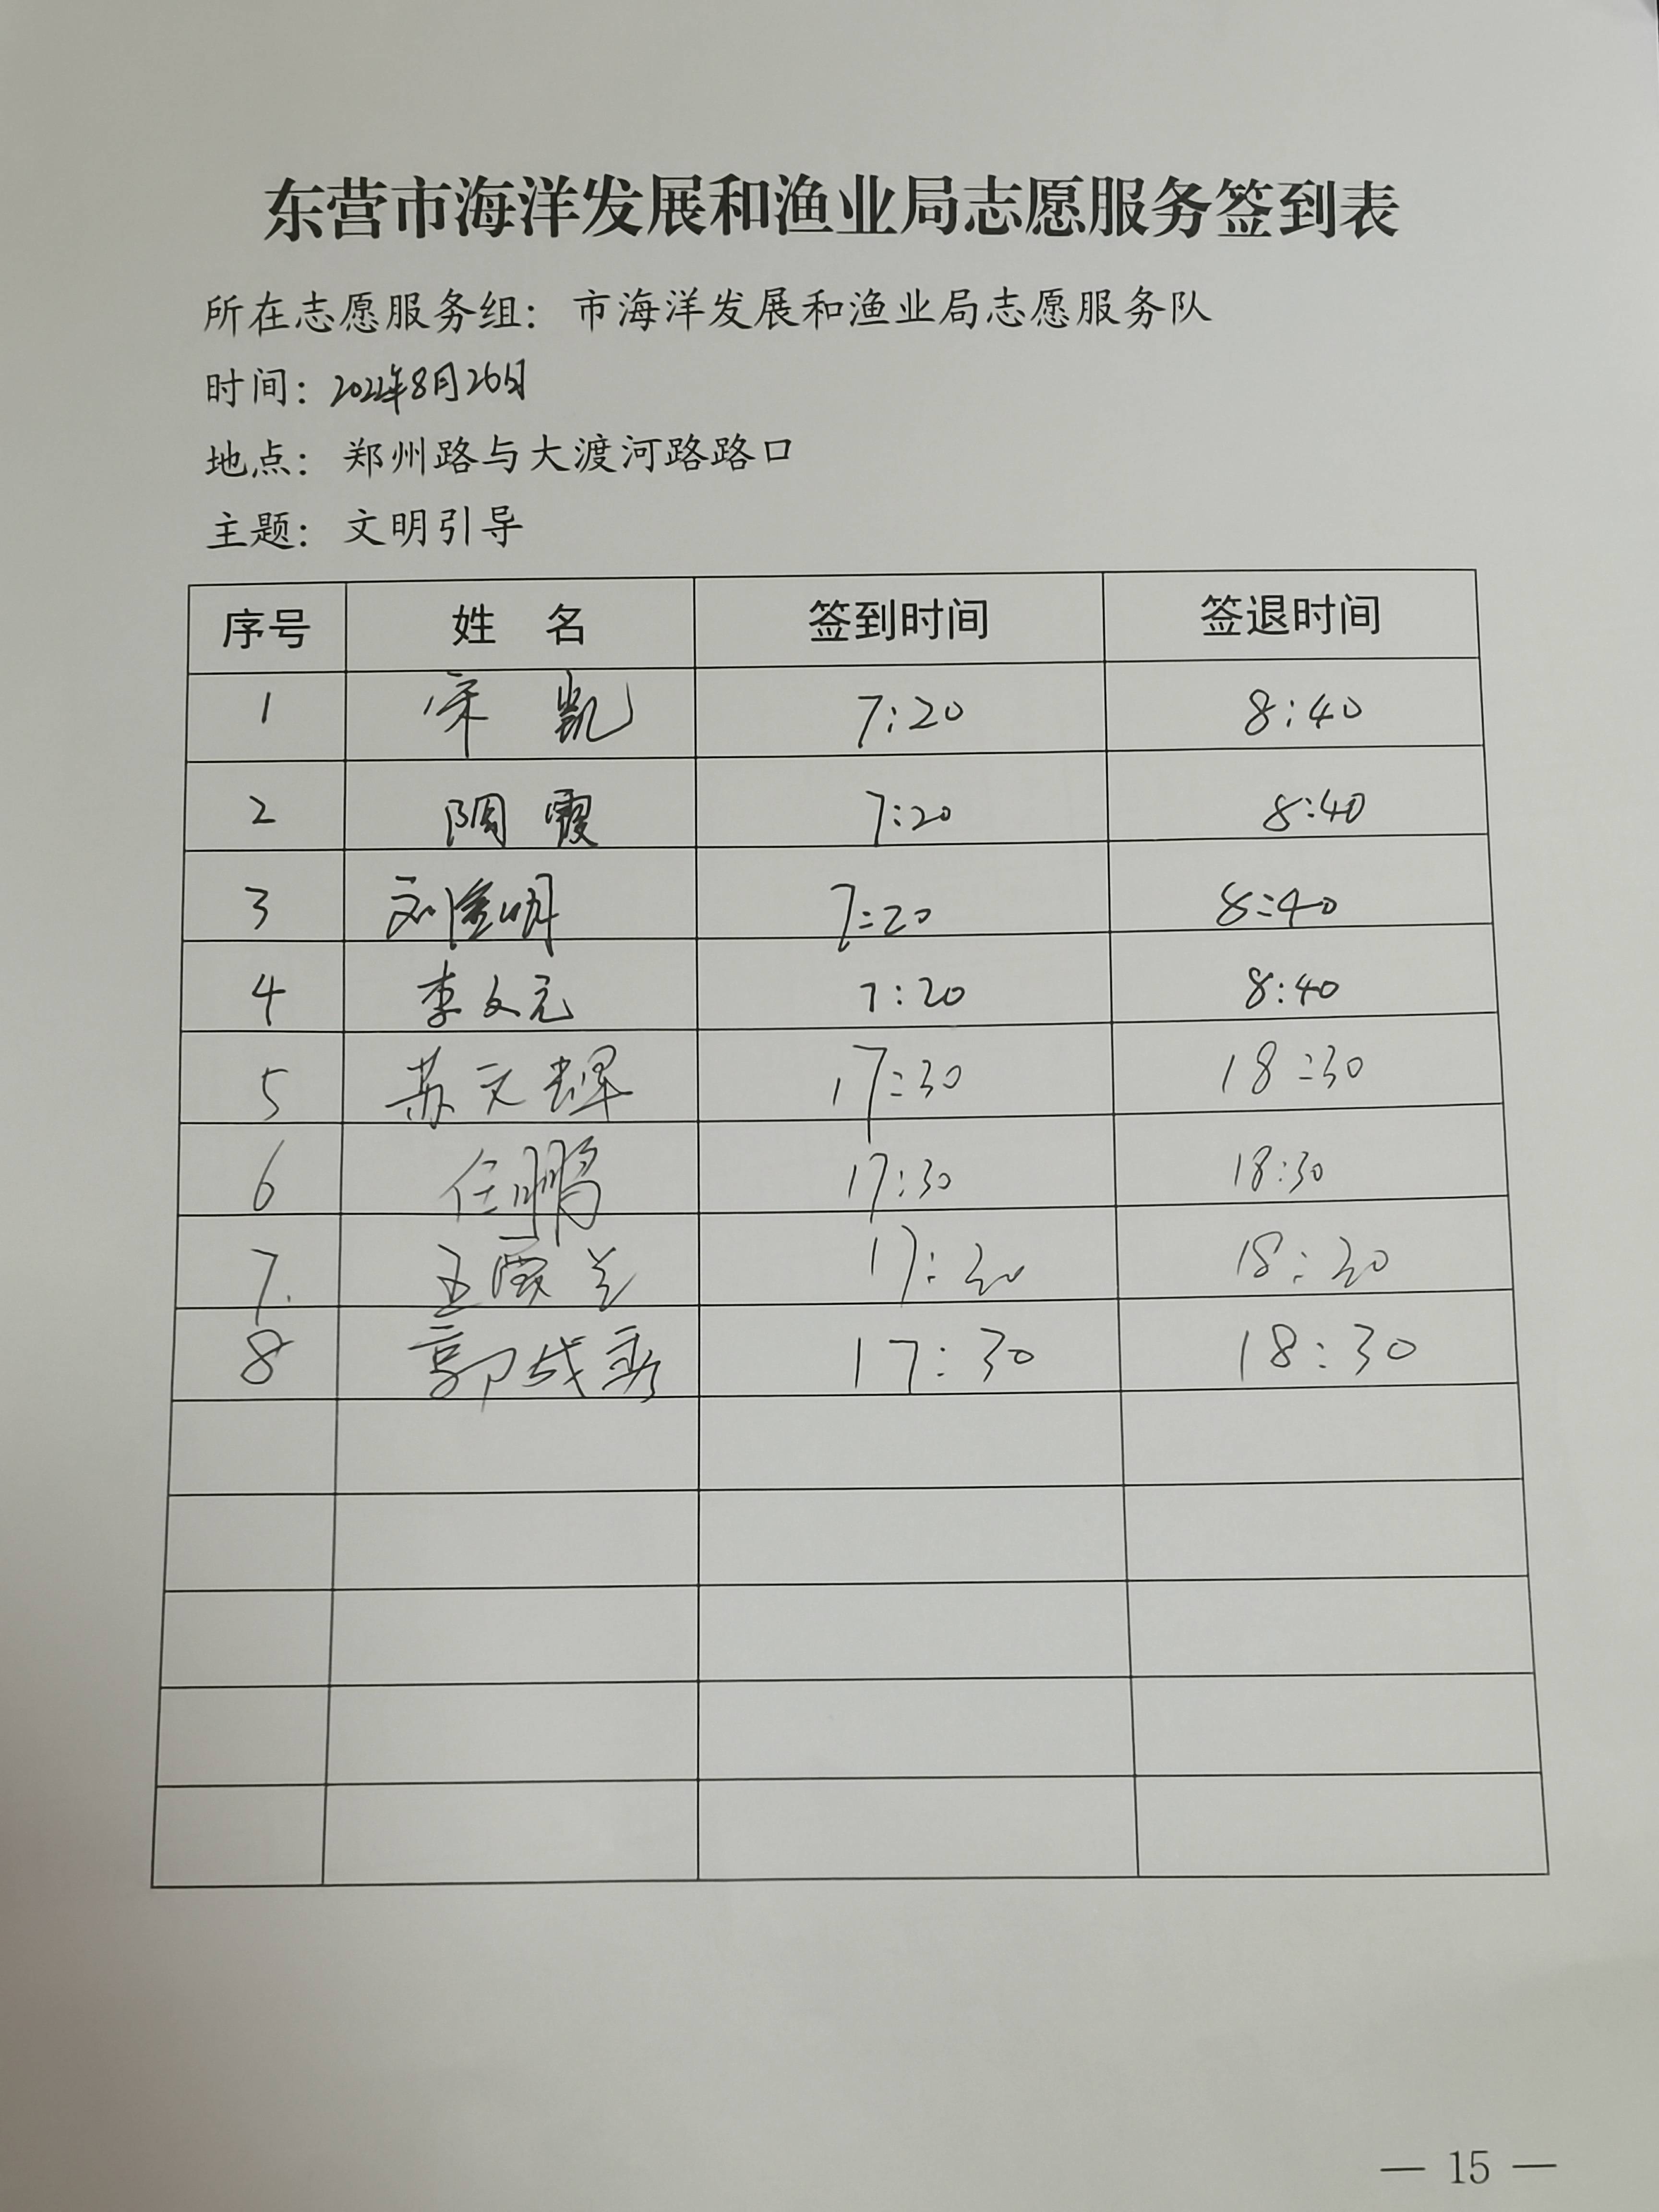 东营市海洋发展和渔业局志愿服务签到表
所在志愿服务组：市海洋发展和渔业局志愿服务队
时间：2022年8月26日
地点：郑州路与大渡河路路口
主题：文明引导
序号 姓 名 签到时间 签退时间
1 宋 凯 7:20 8:40
2 霞 7:20 8:40
3 刘 明 7:20 8:40
4 李文元 7:20 8:40
5 苏文辉 17:30 18:30
6 任鹏 17:30 18:30
7. 王 兰 17:30 18:30
8 郭 17:30 18:30
— 15 —